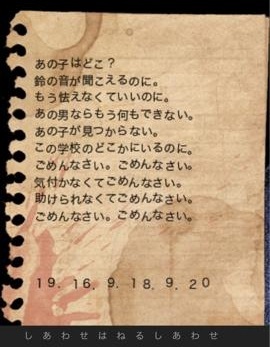 あの子はどこ？
鈴の音が聞こえるのに。
もう怯えなくていいのに。
あの男ならもう何もできない。
あの子が見つからない。
この学校のどこかにいるのに。
ごめんなさい。ごめんなさい。
気付かなくてごめんなさい。
助けられなくてごめんなさい。
ごめんなさい。ごめんなさい。
19. 16. 9. 18. 9. 20
しあわせはねるしあわせ